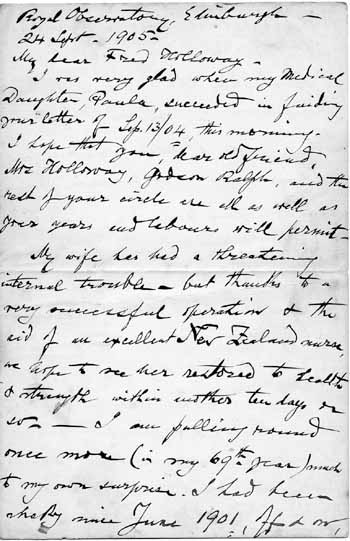 Royal Observatory, Edinburgh —
24 Sept. 1905 —
My dear Fred Holloway —
I was very glad when my Medical
Daughter, Paula, succeeded in finding
your letter of Sep. 13/04 this morning.
I hope that you, dear old friend,
Mrs Holloway, Godson Ralph, and the
rest of your circle are all as well as
your years and labours will permit —
My wife has had a threatening
internal trouble — but thanks to a
very successful operation & the
aid of an excellent New Zealand nurse,
we hope to see her restored to health
& strength within another ten days or
so — — I am pulling round
once more (in my 69th year) much
to my own surprise. I had been
shaky since June 1901, off & on,